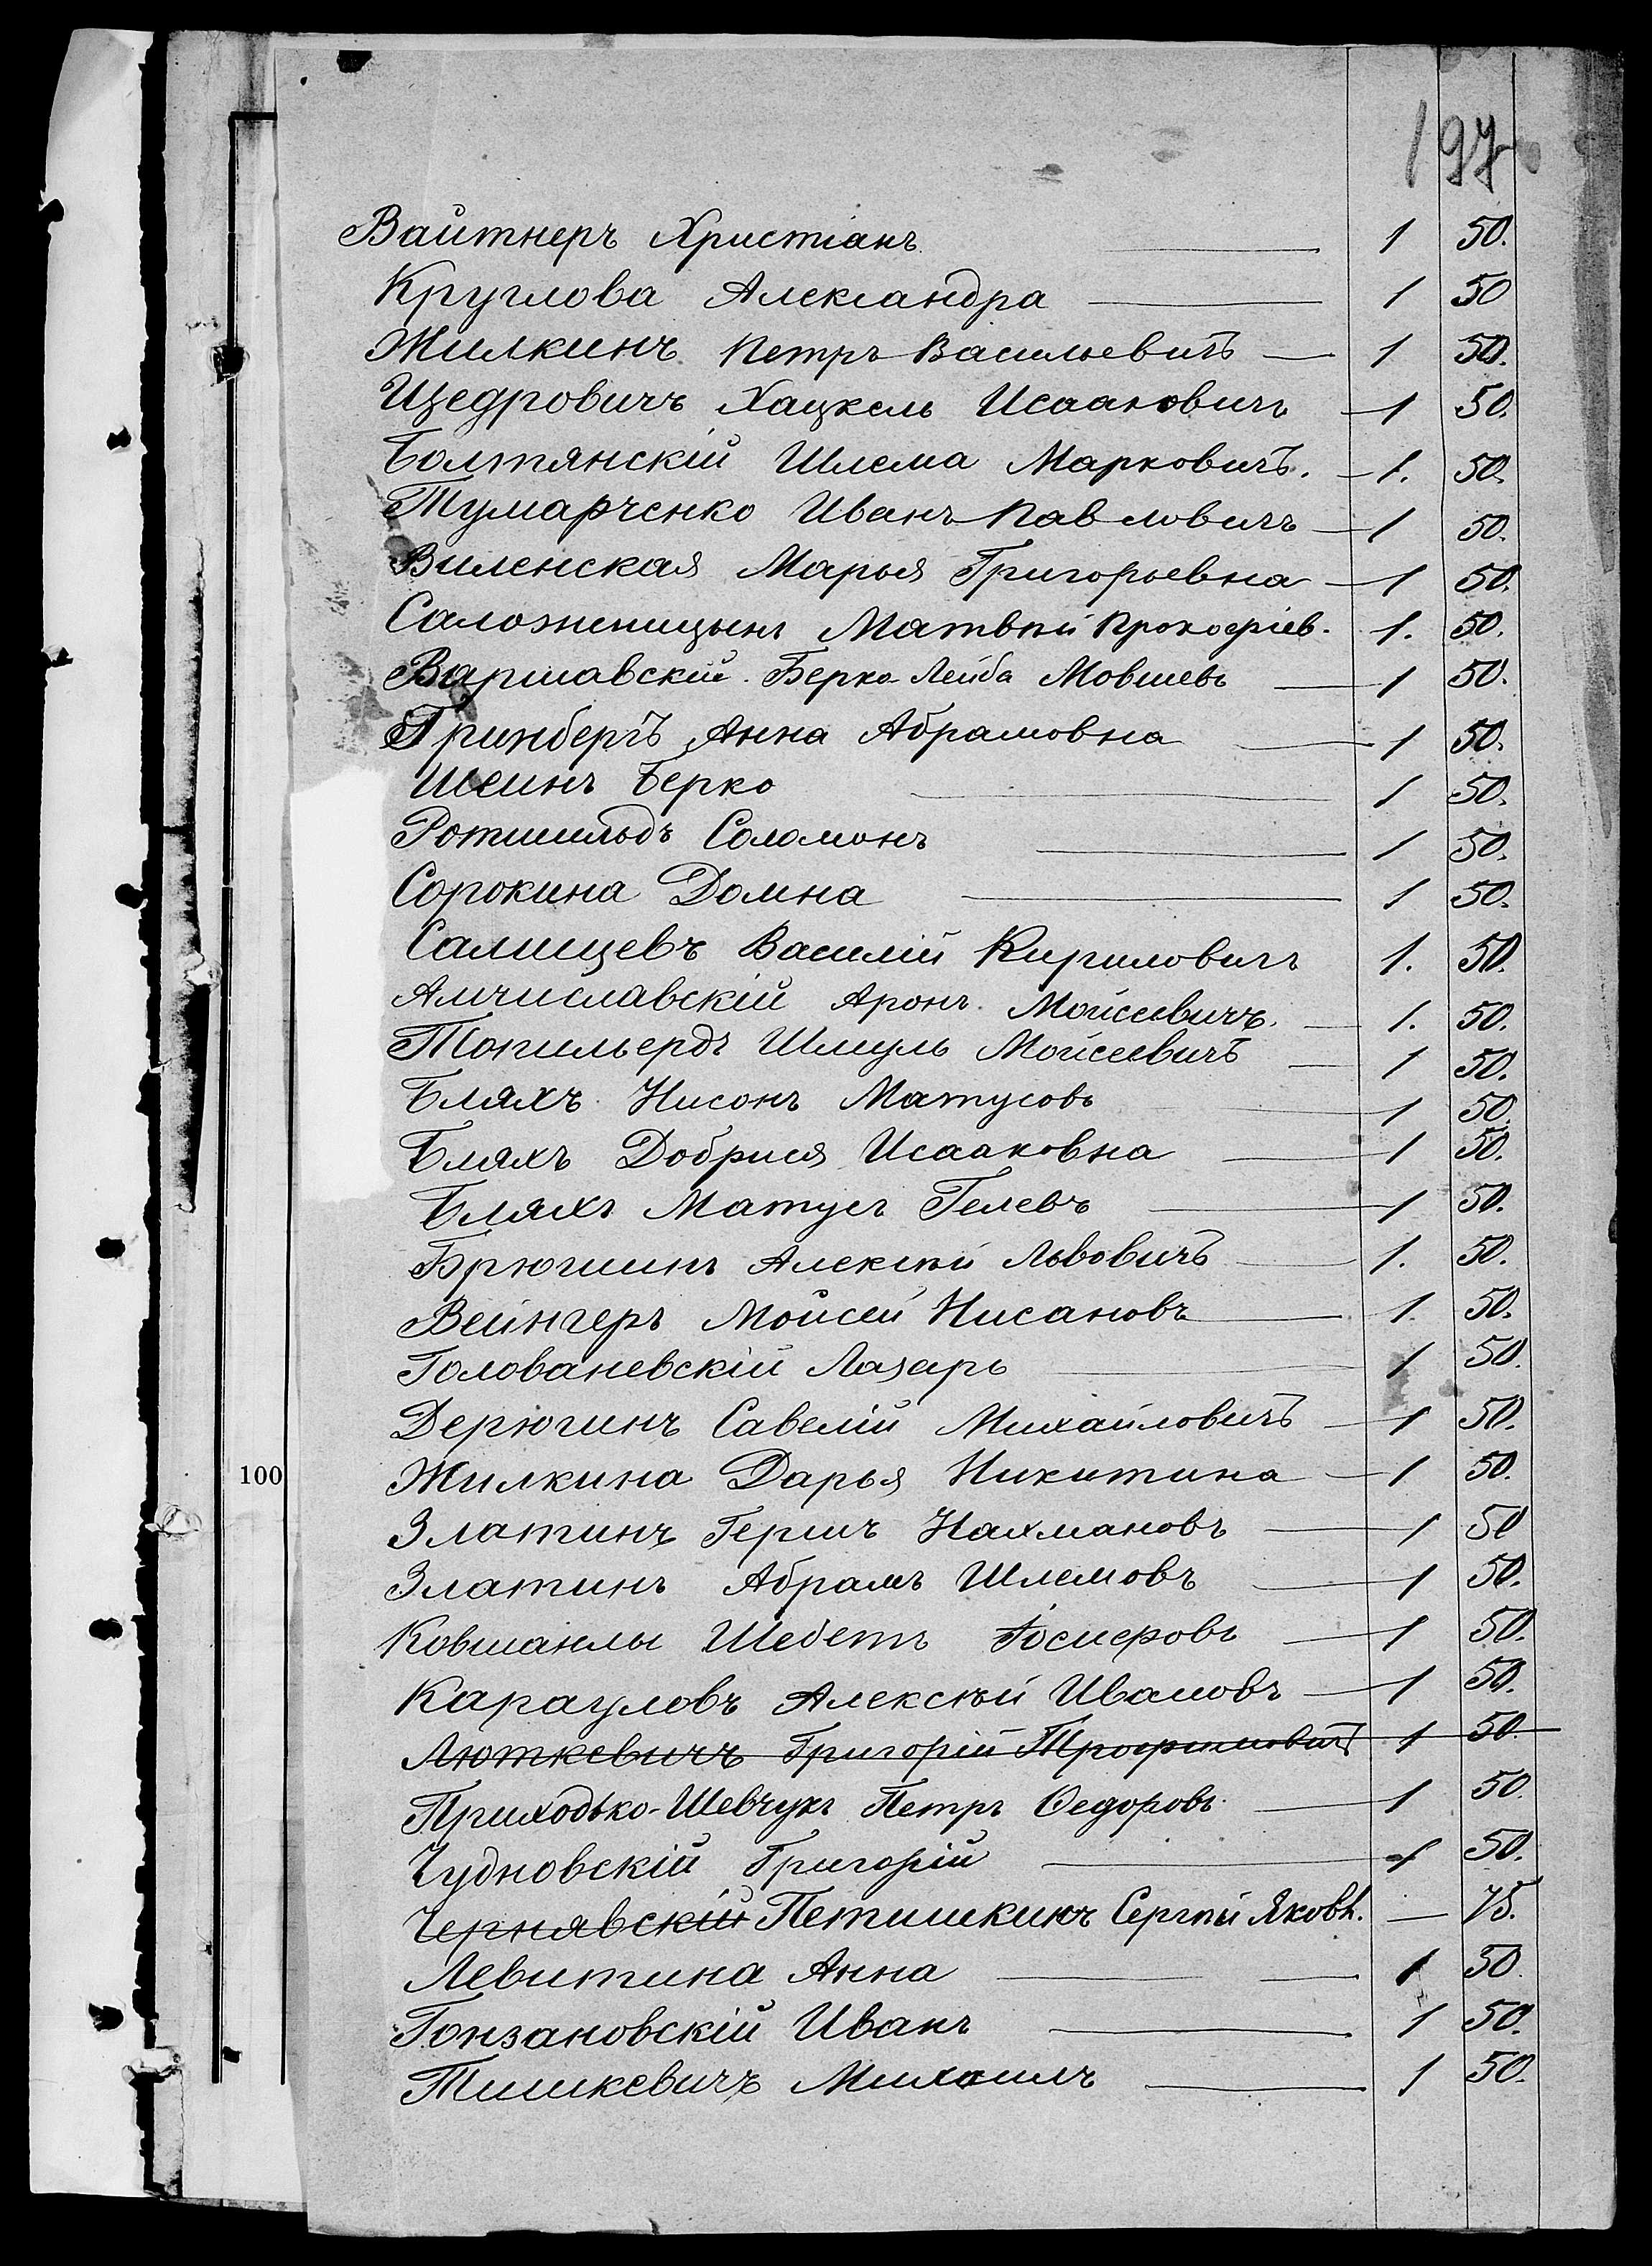 197
Вайтнеръ Христіанъ 1 50.
Круглова Александра 1 50
Жилкинъ Петръ Васильевичъ 1 50.
Щедровичъ Хацкель Исааковичъ 1 50.
Болтянскій Шлема Марковичъ. 1. 50.
Тумарченко Иванъ Павловичъ 1 50.
Виленская Марья Григорьевна 1 50.
Саложеницынъ Матвѣй Прокофіев. 1. 50.
Варшавскій Берко-Лейба Мовшевъ 1 50.
Гринбергъ Анна Абрамовна 1 50.
Шеинъ Берко 1 50.
Ротшильдъ Соломонъ 1 50.
Сорокина Домна 1 50.
Салищевъ Василій Кириловичъ 1. 50.
Амчиславскій Аронъ Мойсеевичъ. 1. 50.
Топильердъ Шмуль Мойсеевичъ 1 50.
Бляхъ Нисонъ Матусовъ 1 50.
Бляхъ Добрися Исааковна 1 50.
Бляхъ Матусъ Гелевъ 1 50.
Брюгшинъ Алексѣй Львовичъ 1. 50.
Вейнгеръ Мойсей Нисановъ 1. 50.
Голованевскій Лазарь 1 50.
Дерюгинъ Савелій Михайловичъ 1 50.
Жилкина Дарья Никитина 1 50.
Златинъ Гершъ Нахмановъ 1 50
Златинъ Абрамъ Шлемовъ 1 50.
Ковшанлы Шебетъ 1 50.
Карауловъ Алексѣй Ивановъ 1 50.
Люткевичъ Григорій Трофимовичъ 1 50.
Приходько-Шевчукъ Петръ Ѳедоровъ 1 50.
Чудновскій Григорій 1 50.
Чернявскій Петишкинъ Сергѣй Яковл. — 75.
Левитина Анна 1 50
Гонзановскій Иванъ 1 50.
Тишкевичъ Михаилъ 1 50.
100